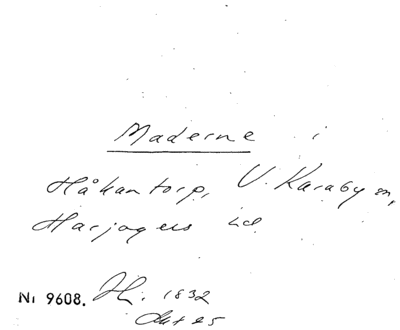 Maderne i
Håkantorp, V. Karaby sn,
Barjogens hd.
Nr 9608. 1832
Okt 25